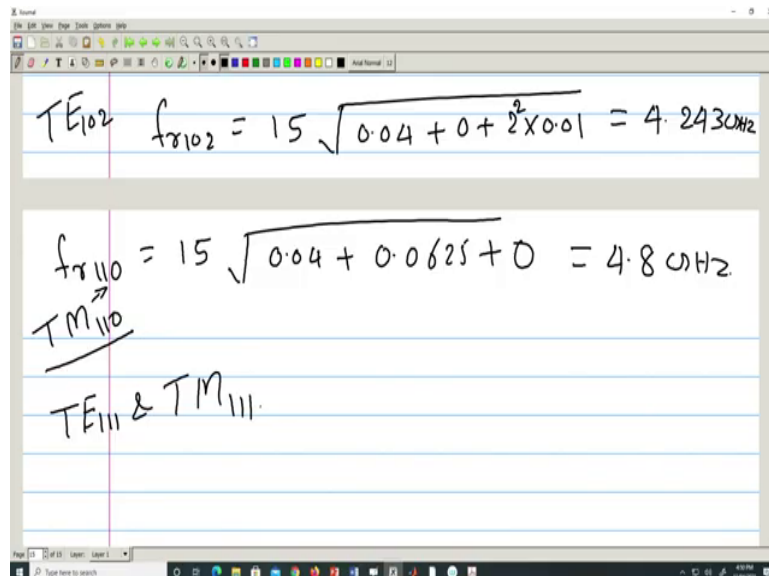 Xournal
File Edit View Page Tools Options Help
Arial Normal 12
TE₁₀₂ fᵣ₁₀₂ = 15 √(0.04 + 0 + 2² × 0.01) = 4.243 GHz
fᵣ₁₁₀ = 15 √(0.04 + 0.0625 + 0) = 4.8 GHz
TM₁₁₀
TE₁₁₁ & TM₁₁₁.
Page 15 of 15 Layer: Layer 1
Type here to search
4:10 PM